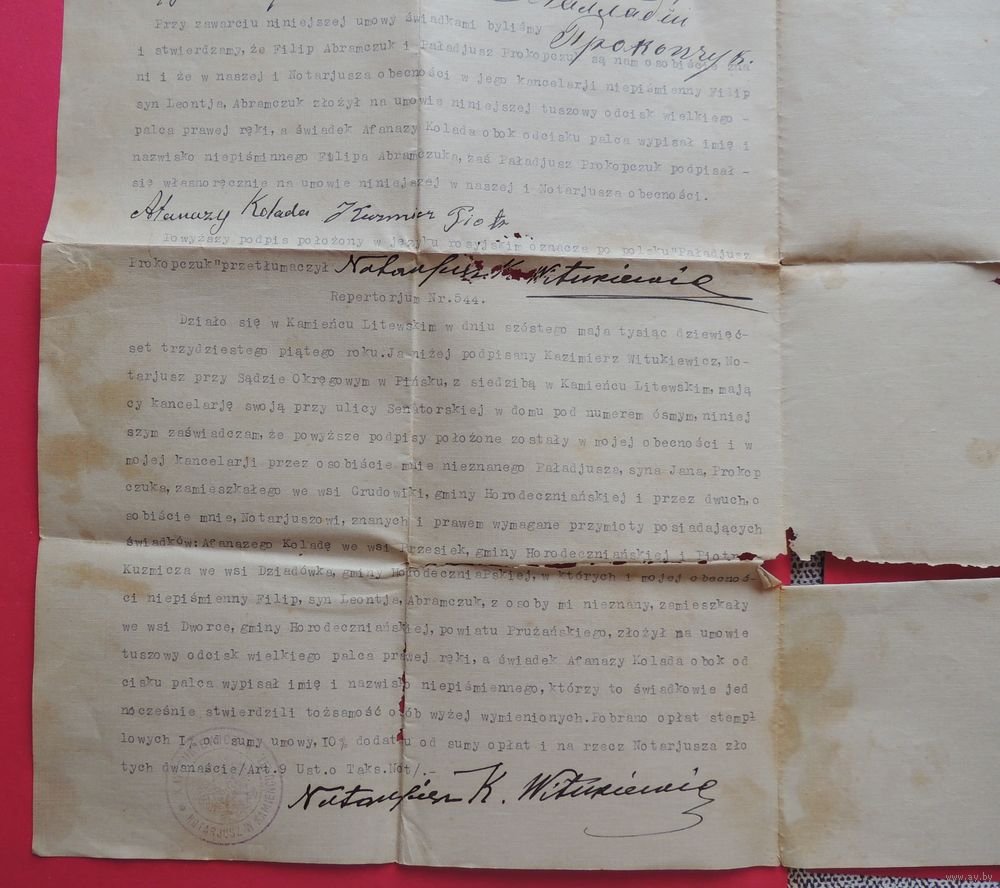 Przy zawarciu niniejszej umowy świadkami byliśmy
Прокопчук.
i stwierdzamy, że Filip Abramczuk i Paładjusz Prokopczuk są nam osobiście zna
ni i że w naszej i Notarjusza obecności w jego kancelarji niepiśmienny Filip
syn Leontja, Abramczuk złożył na umowie niniejszej tuszowy odcisk wielkiego -
palca prawej ręki, a świadek Afanazy Kolada obok odcisku palca wypisał imię i
nazwisko niepiśminnego Filipa Abramczuka, zaś Paładjusz Prokopczuk podpisał -
się własnoręcznie na umowie niniejszej w naszej i Notarjusza obecności.
Afanazy Kolada Kuzmicz Piotr
Powyższy podpis położony w języku rosyjskim oznacza po polsku "Paładjusz
Prokopczuk" przetłumaczył Notarjusz K. Witukiewicz
Repertorjum Nr.544.
Działo się w Kamieńcu Litewskim w dniu szóstego maja tysiąc dziewięć-
set trzydziestego piątego roku. Ja niżej podpisany Kazimierz Witukiewicz, No-
tarjusz przy Sądzie Okręgowym w Pińsku, z siedzibą w Kamieńcu Litewskim, mają
cy kancelarję swoją przy ulicy Senatorskiej w domu pod numerem ósmym, niniej
szym zaświadczam, że powyższe podpisy położone zostały w mojej obecności i w
mojej kancelarji przez osobiście mnie nieznanego Paładjusza, syna Jana, Prokop
czuka, zamieszkałego we wsi Grudowiki, gminy Horodeczniańskiej i przez dwuch, o
sobiście mnie, Notarjuszowi, znanych i prawem wymagane przymioty posiadających
świadków: Afanazego Koladę we wsi Przesiek, gminy Horodeczniańskiej i Piotra
Kuzmicza we wsi Dziadówka, gminy Horodeczniańskiej, w których i mojej obecnoś-
ci niepiśmienny Filip, syn Leontja, Abramczuk, z osoby mi nieznany, zamieszkały
we wsi Dworce, gminy Horodeczniańskiej, powiatu Prużańskiego, złożył na umowie
tuszowy odcisk wielkiego palca prawej ręki, a świadek Afanazy Kolada obok od
cisku palca wypisał imię i nazwisko niepiśmiennego, którzy to świadkowie jed
nocześnie stwierdzili tożsamość osób wyżej wymienionych. Pobrano opłat stempl
lowych 1% od sumy umowy, 10% dodatku od sumy opłat i na rzecz Notarjusza zło
tych dwanaście/Art.9 Ust.o Taks.Not/.-
Notarjusz K. Witukiewicz
NOTARJUSZ W KAMIEŃCU
www.ay.by